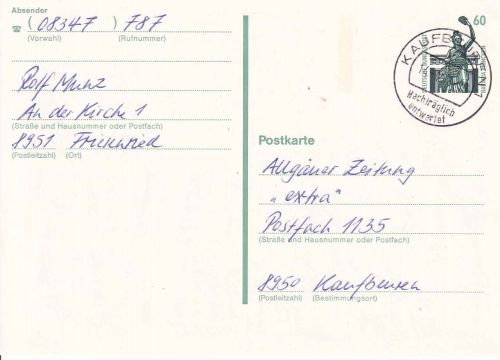 Absender
☎ (08347) 787
(Vorwahl) (Rufnummer)
Rolf Munz
An der Kirche 1
(Straße und Hausnummer oder Postfach)
8951 Frickenried
(Postleitzahl) (Ort)
60
KAUFBEUREN 1
Nachträglich
entwertet
Postkarte
Allgäuer Zeitung
„extra"
Postfach 1135
(Straße und Hausnummer oder Postfach)
8950 Kaufbeuren
(Postleitzahl) (Bestimmungsort)